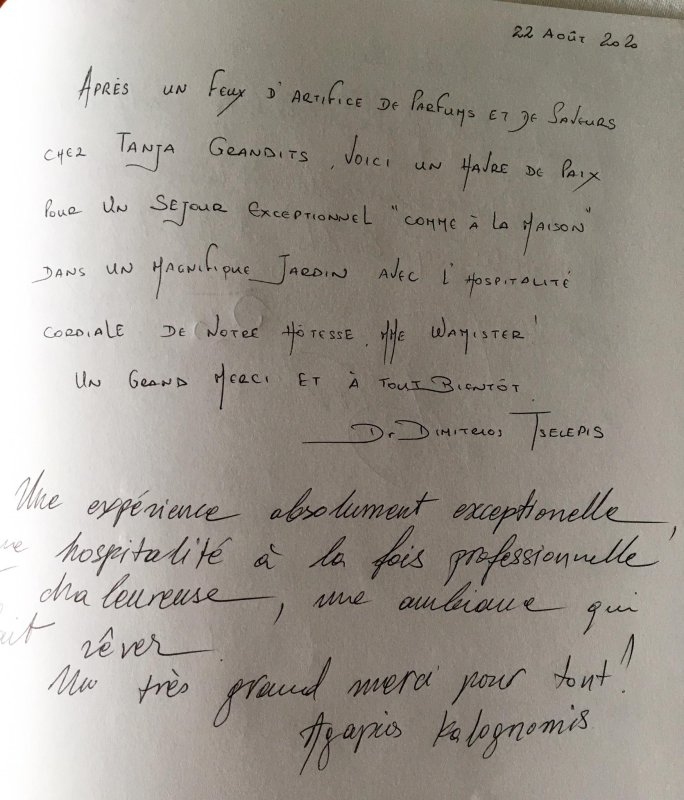 22 Août 2020
Après un Feux d'Artifice de Parfums et de Saveurs
chez Tanja Grandits, voici un Havre de Paix
pour un Séjour Exceptionnel "comme à la Maison"
dans un Magnifique Jardin avec l'Hospitalité
cordiale de notre Hôtesse, Mme Wamister!
Un Grand Merci et à tout Bientôt
Dr Dimitrios Tselepis
Une expérience absolument exceptionelle,
une hospitalité à la fois professionnelle
chaleureuse, une ambiance qui
fait rêver.
Un très grand merci pour tout!
Agapios Kalognomis